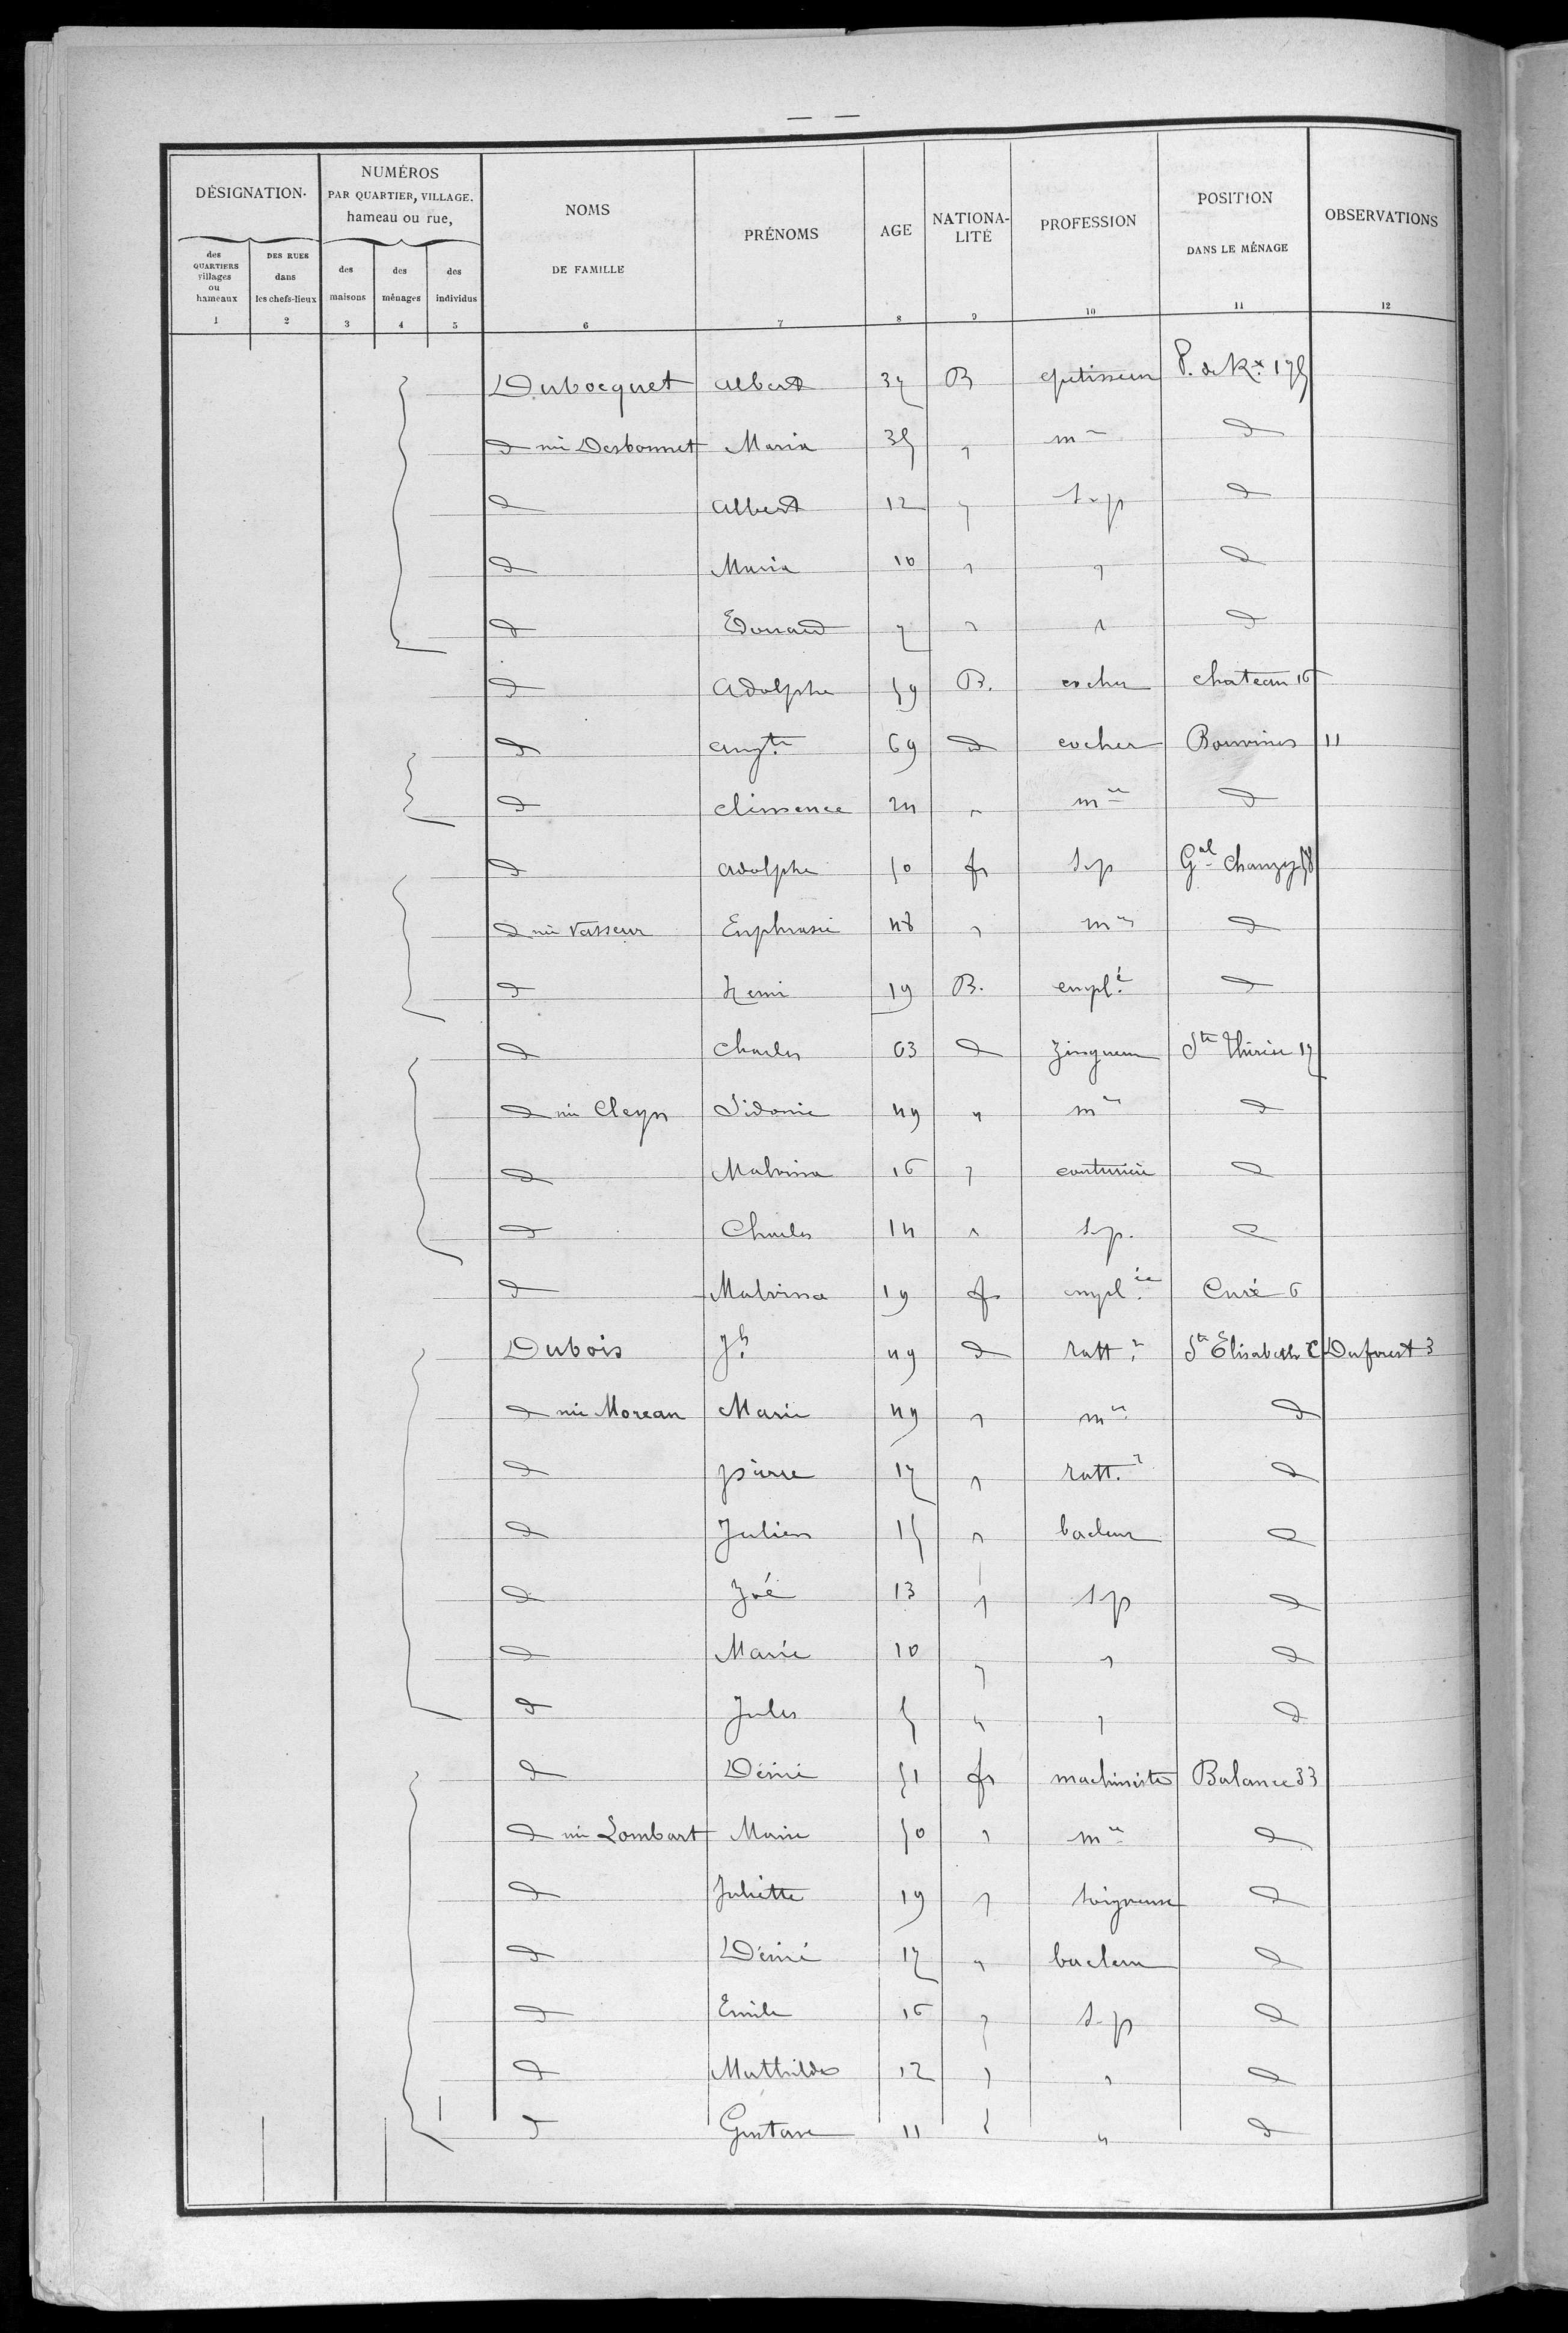 DÉSIGNATION.
NUMÉROS
PAR QUARTIER, VILLAGE.
hameau ou rue,
NOMS
DE FAMILLE
PRÉNOMS
AGE
NATIONA-
LITÉ
PROFESSION
POSITION
DANS LE MÉNAGE
OBSERVATIONS
des
QUARTIERS
villages
ou
hameaux
DES RUES
dans
les chefs-lieux
des
maisons
des
ménages
des
individus
1 2 3 4 5 6 7 8 9 10 11 12
Dubocquet Albert 37 B P. de Rx 175
d née Desbonnet Maria 35 " mre d
d Albert 12 " s.p d
d Maria 10 " " d
d Edouard 7 " " d
d Adolphe 59 B. cocher chateau 16
d Augte 69 d cocher Bouvines 11
d clémence 24 " mre d
d adolphe 50 fr s.p Gal Chanzy 58
d née Vasseur Euphrasie 48 " mre d
d Henri 19 B. emplé d
d Charles 63 d zingueur Ste Thérèse 17
d née Cleyn Sidonie 49 " mre d
d Malvina 16 " couturière d
d Charles 14 " s.p. d
d Malvina 19 fr emplée Curé 6
Dubois Jh 49 d ratt.r Ste Elisabeth C Duforest 3
d née Moreau Marie 49 " mre d
d pierre 17 " ratt.r d
d Julien 15 " bacleur d
d Zoé 13 " s.p d
d Marie 10 " " d
d Jules 5 " " d
d Désiré 51 fr machiniste Balance 33
d née Lombart Marie 50 " mre d
d Juliette 19 " soigneuse d
d Désiré 17 " bacleur d
d Emile 16 " s.p d
d Mathilde 12 " " d
d Gustave 11 " " d